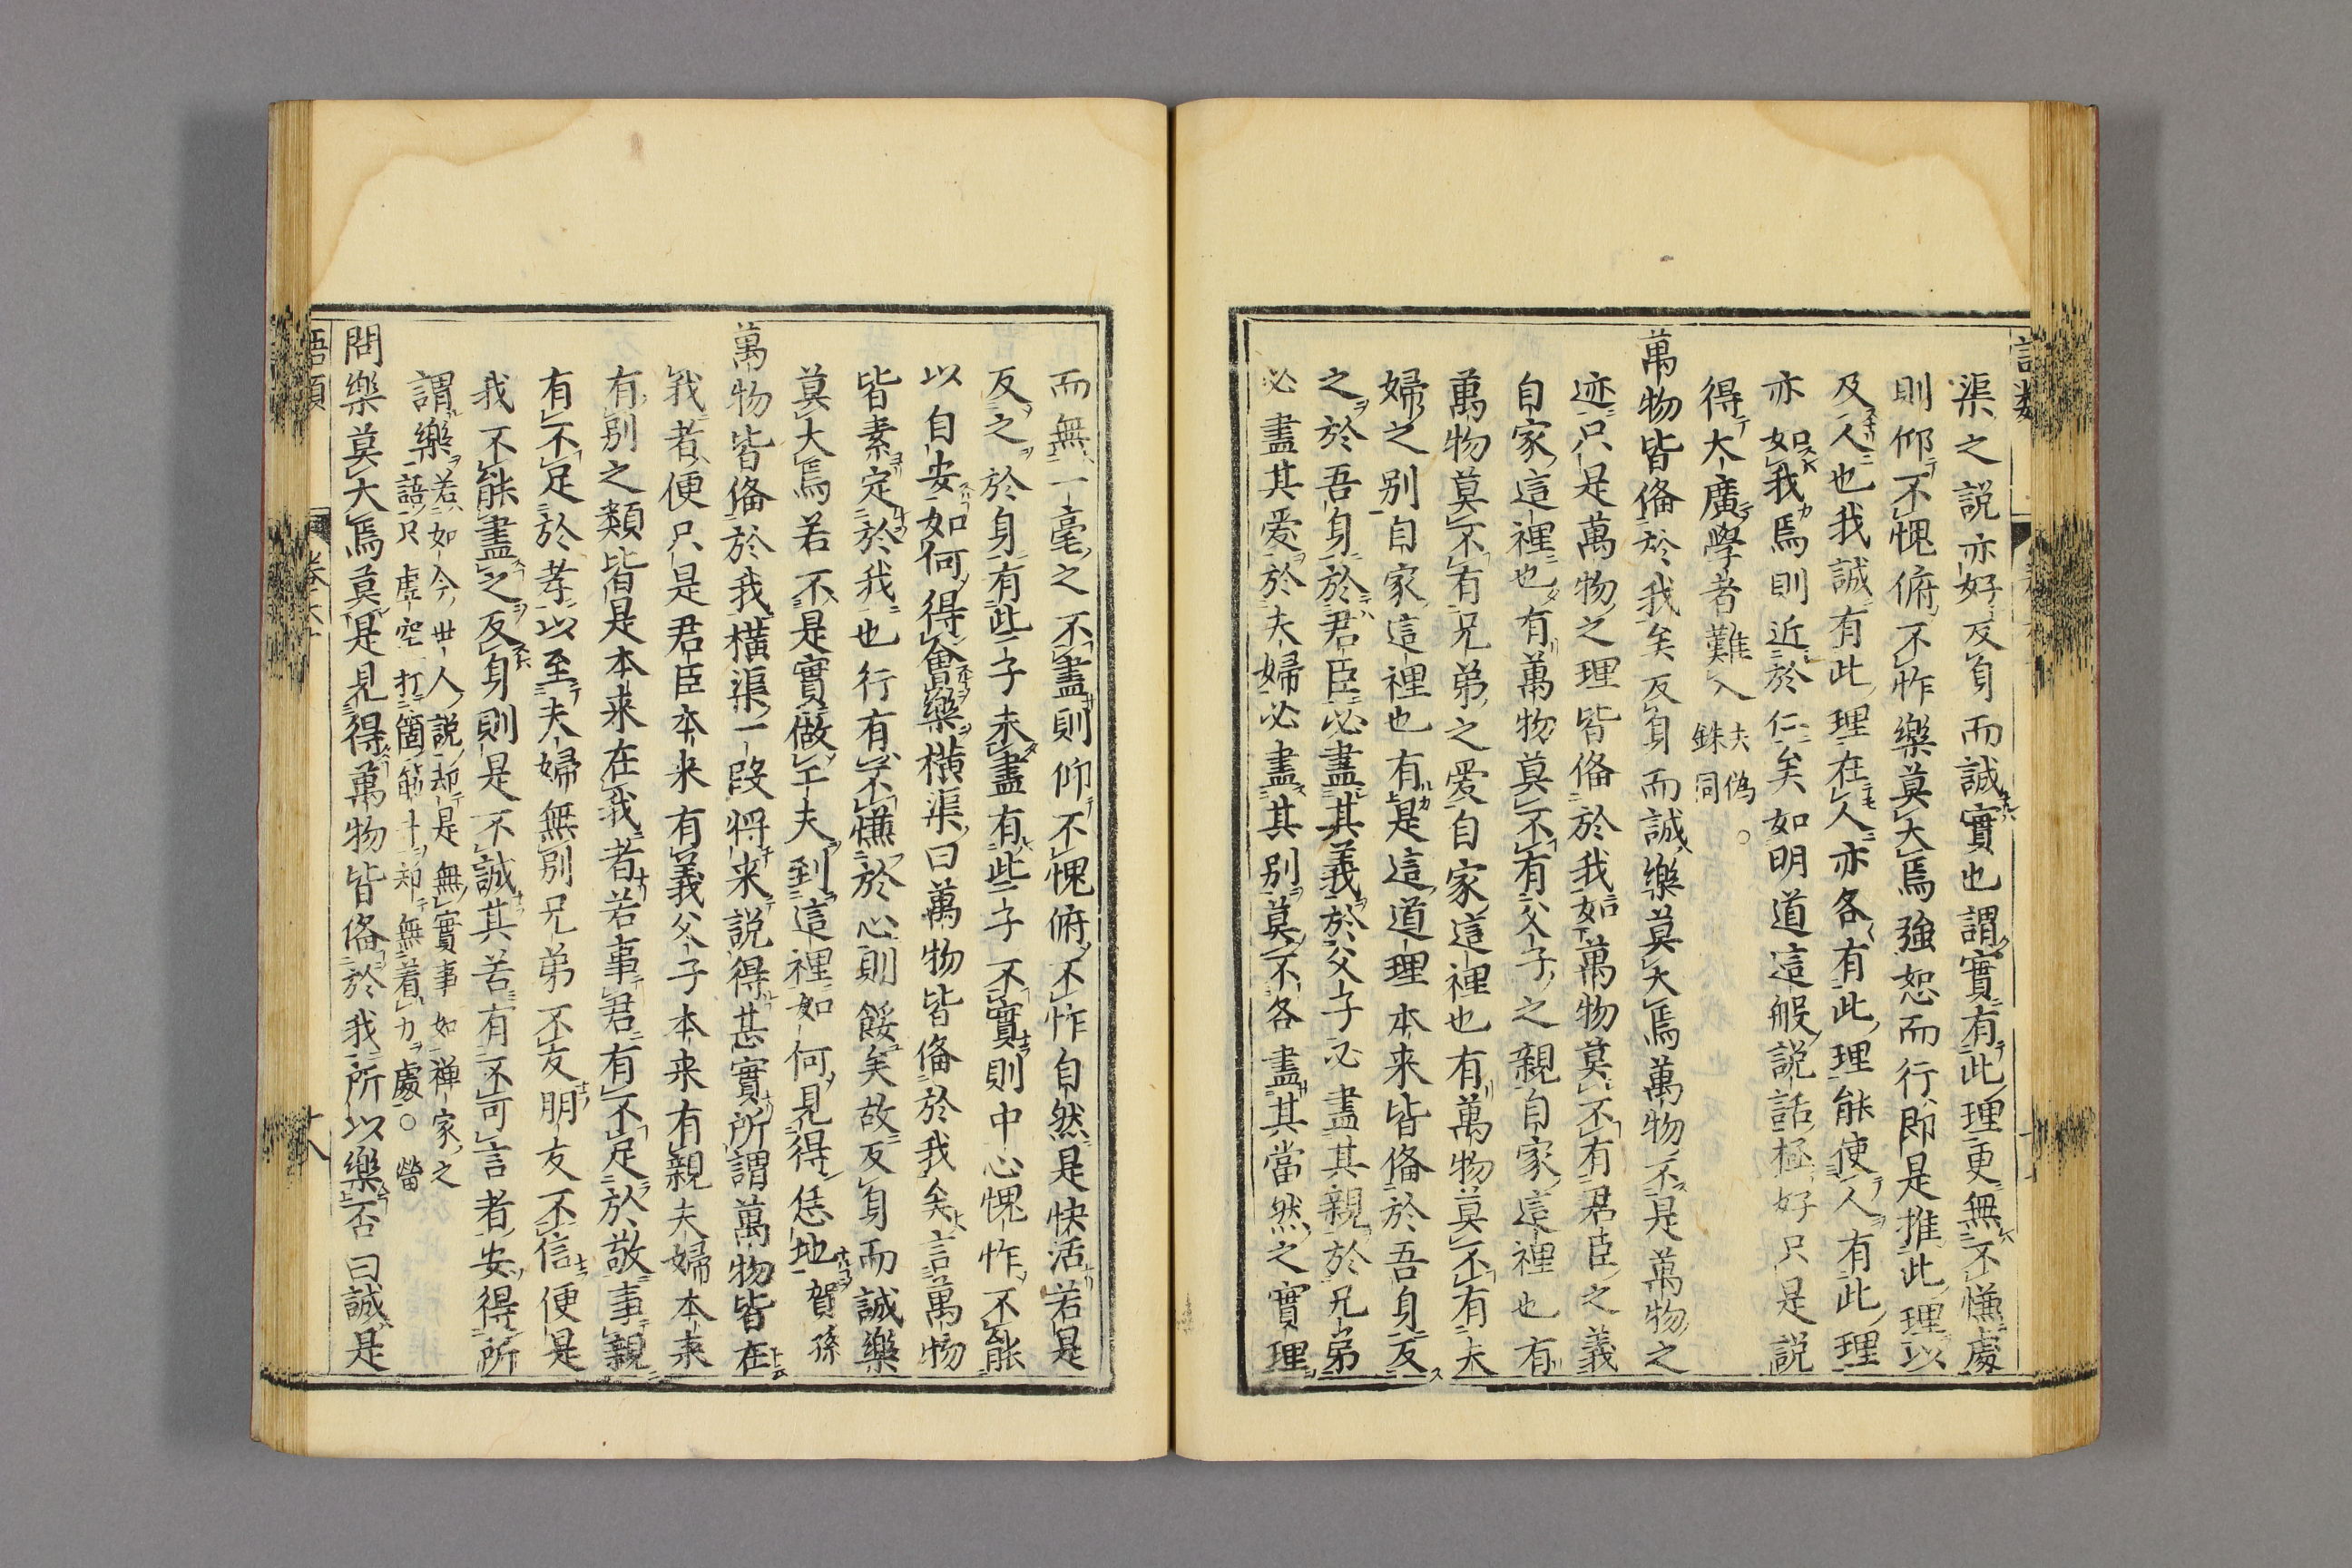 渠之説亦好反身而誠實也謂實有此理更無不慊處
則仰不愧俯不怍樂莫大焉強恕而行即是推此理以
及人也我誠有此理在人亦各有此理能使人有此理
亦如我焉則近於仁矣如明道這般説話極好只是説
得太廣學者難入
夫僞○
銖同
萬物皆俻於我矣反身而誠樂莫大焉萬物不是萬物之
迹只是萬物之理皆俻於我如萬物莫不有君臣之義
自家這裡也有萬物莫不有父子之親自家這裡也有
萬物莫不有兄弟之愛自家這裡也有萬物莫不有夫
婦之别自家這裡也有是這道理本来皆俻於吾身反
之於吾身於君臣必盡其義於父子必盡其親於兄弟
必盡其愛於夫婦必盡其别莫不各盡其當然之實理
而無一毫之不盡則仰不愧俯不怍自然是快活若是
反之於身有此子未盡有些子不實則中心愧怍不能
以自安如何得會樂横渠曰萬物皆俻於我矣言萬物
皆素定於我也行有不慊於心則餒矣故反身而誠樂
莫大焉若不是實做工夫到這裡如何見得恁地賀孫
萬物皆俻於我横渠一段将来説得甚實所謂萬物皆在
我者便只是君臣本来有義父子本来有親夫婦本来
有别之類皆是本来在我者若事君有不足於敬事親
有不足於孝以至夫婦無别兄弟不友朋友不信便是
我不能盡之反身則是不誠其苦有不可言者安得所
謂樂若如今世人説却是無實事如禅家之
語只虚空打箇筋斗却無着力處○䕃
問樂莫大焉莫是見得萬物皆俻於我所以樂否曰誠是
語類
卷六十